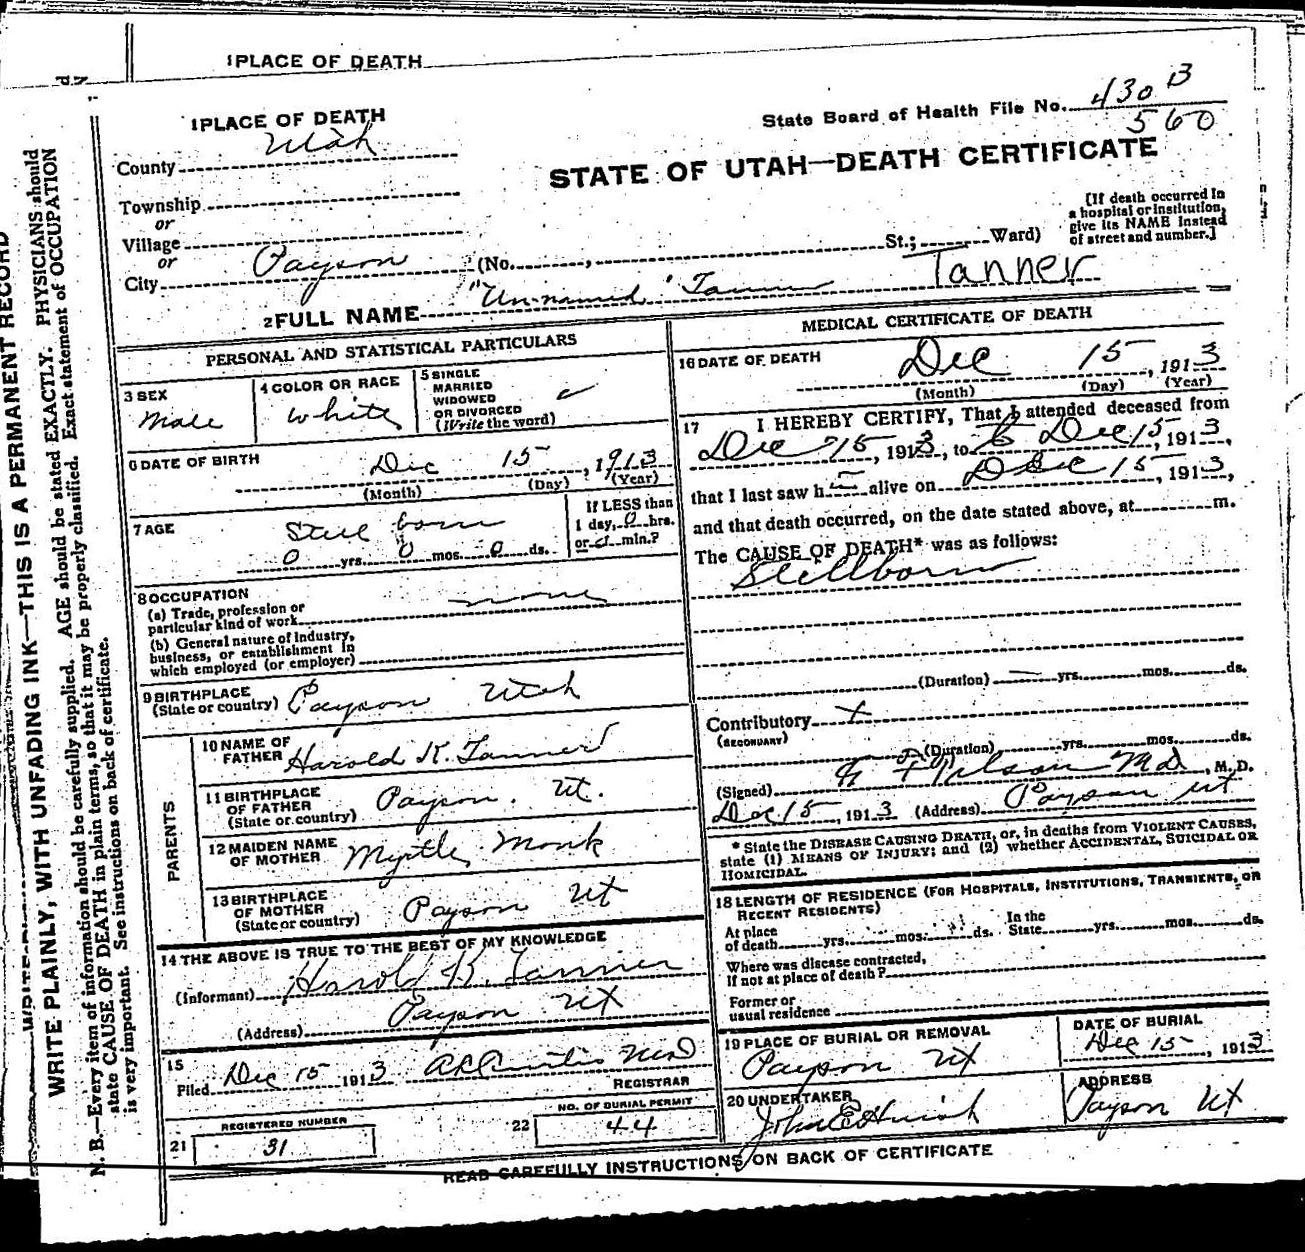 1 PLACE OF DEATH
1 PLACE OF DEATH
State Board of Health File No. 430 B
560
County Utah
STATE OF UTAH—DEATH CERTIFICATE
Township
or
Village
or
City Payson (No. , St.; Ward)
[If death occurred in
a hospital or institution,
give its NAME instead
of street and number.]
Tanner
2 FULL NAME "Un-named" Tanner
PERSONAL AND STATISTICAL PARTICULARS
3 SEX
Male
4 COLOR OR RACE
White
5 SINGLE
MARRIED
WIDOWED
OR DIVORCED
(Write the word)
6 DATE OF BIRTH
Dec 15, 1913
(Month) (Day) (Year)
7 AGE
Still born
0 yrs. 0 mos. 0 ds.
If LESS than
1 day, 0 hrs.
or 0 min.?
8 OCCUPATION
(a) Trade, profession or
particular kind of work none
(b) General nature of industry,
business, or establishment in
which employed (or employer)
9 BIRTHPLACE
(State or country) Payson Utah
PARENTS
10 NAME OF
FATHER Harold K. Tanner
11 BIRTHPLACE
OF FATHER
(State or country) Payson, Ut.
12 MAIDEN NAME
OF MOTHER Myrtle Monk
13 BIRTHPLACE
OF MOTHER
(State or country) Payson Ut
14 THE ABOVE IS TRUE TO THE BEST OF MY KNOWLEDGE
(Informant) Harold K. Tanner
(Address) Payson Ut
15
Filed Dec 15 1913 Curtis
REGISTRAR
REGISTERED NUMBER
21 31
NO. OF BURIAL PERMIT
22 44
MEDICAL CERTIFICATE OF DEATH
16 DATE OF DEATH
Dec 15, 1913
(Month) (Day) (Year)
17 I HEREBY CERTIFY, That I attended deceased from
Dec 15, 1913, to Dec 15, 1913,
that I last saw h alive on Dec 15, 1913,
and that death occurred, on the date stated above, at m.
The CAUSE OF DEATH* was as follows:
Stillborn
(Duration) yrs. mos. ds.
Contributory x
(SECONDARY)
(Duration) yrs. mos. ds.
(Signed) MD, M. D.
Dec 15, 1913 (Address) Payson Ut
* State the DISEASE CAUSING DEATH, or, in deaths from VIOLENT CAUSES,
state (1) MEANS OF INJURY; and (2) whether ACCIDENTAL, SUICIDAL OR
HOMICIDAL.
18 LENGTH OF RESIDENCE (FOR HOSPITALS, INSTITUTIONS, TRANSIENTS, OR
RECENT RESIDENTS)
At place
of death yrs. mos. ds.
In the
State yrs. mos. ds.
Where was disease contracted,
if not at place of death?
Former or
usual residence
19 PLACE OF BURIAL OR REMOVAL
Payson Ut
DATE OF BURIAL
Dec 15, 1913
20 UNDERTAKER
John E
ADDRESS
Payson Ut
READ CAREFULLY INSTRUCTIONS ON BACK OF CERTIFICATE
WRITE PLAINLY, WITH UNFADING INK—THIS IS A PERMANENT RECORD
N. B.—Every item of information should be carefully supplied. AGE should be stated EXACTLY. PHYSICIANS should
state CAUSE OF DEATH in plain terms, so that it may be properly classified. Exact statement of OCCUPATION
is very important. See instructions on back of certificate.